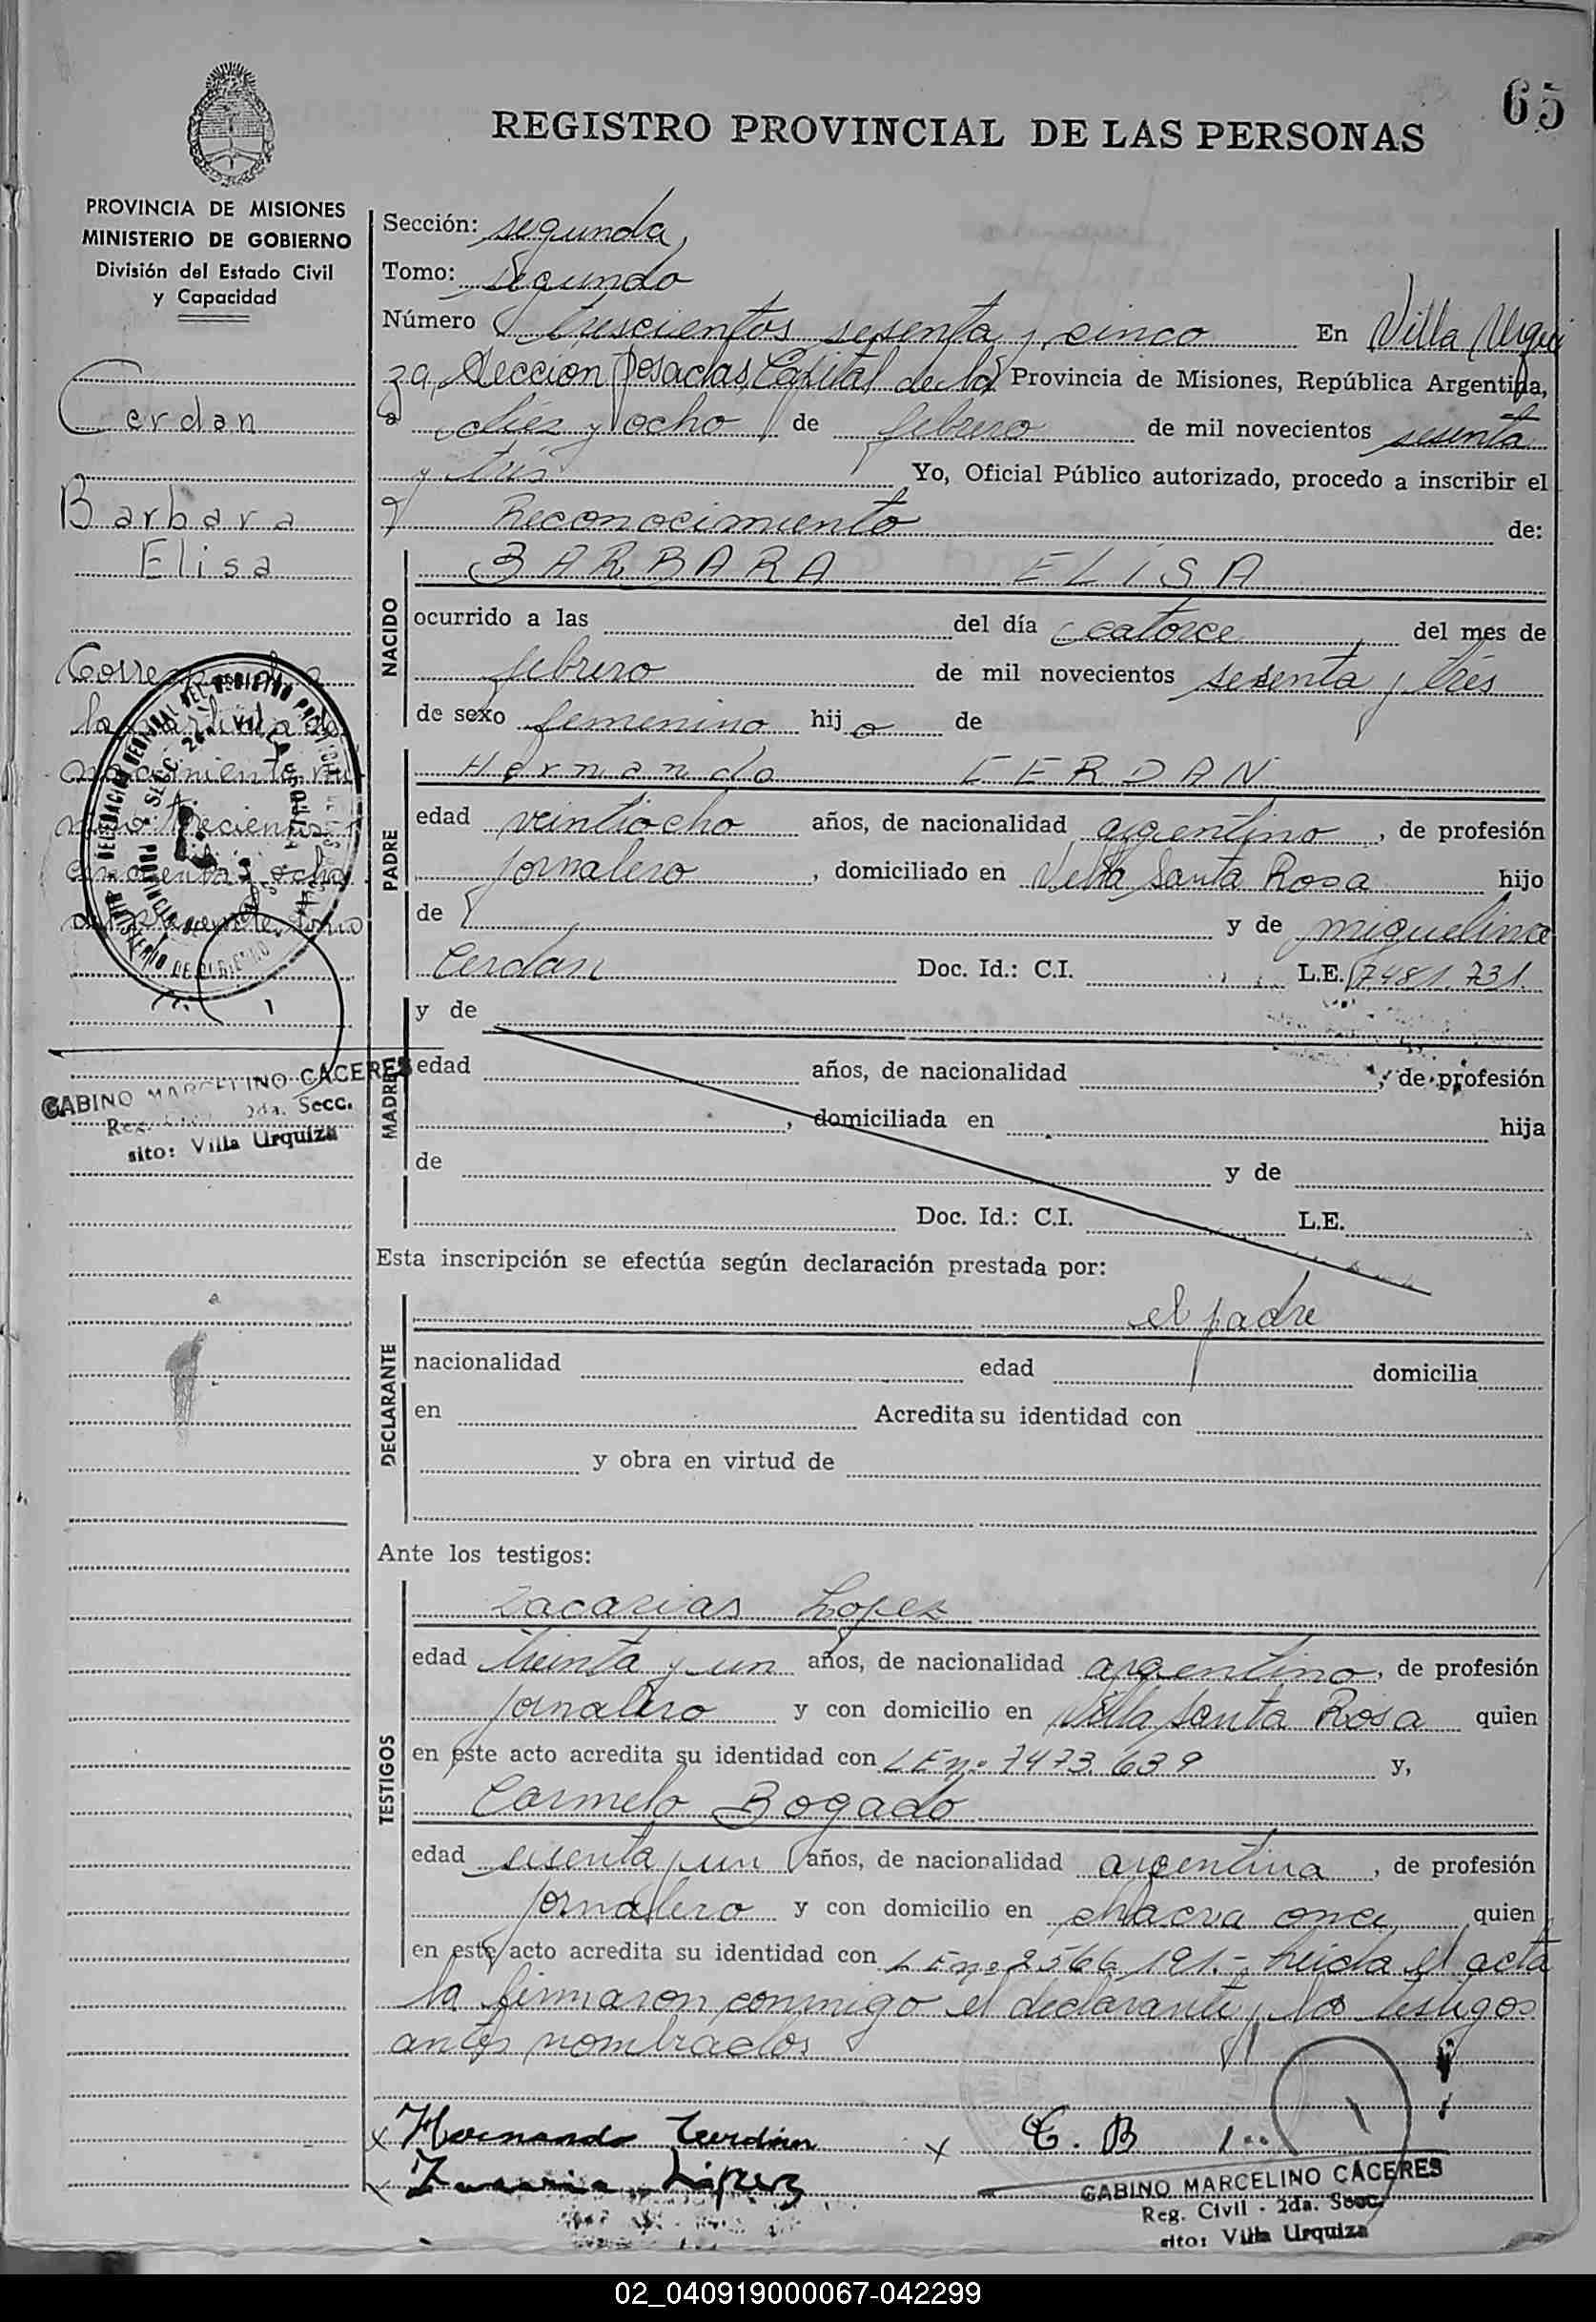 65
REGISTRO PROVINCIAL DE LAS PERSONAS
PROVINCIA DE MISIONES
MINISTERIO DE GOBIERNO
División del Estado Civil
y Capacidad
Cerdan
Barbara
Elisa
Corresponde a
la partida de
nacimiento nú
mero trecientos
cincuenta y ocho
del presente tomo
GABINO MARCELINO CÁCERES
Reg. Civil 2da. Secc.
sito: Villa Urquiza
Sección: segunda,
Tomo: segundo
Número trescientos sesenta y cinco En Villa Urqui
za, Sección Posadas, Capital de la Provincia de Misiones, República Argentina,
a diez y ocho de febrero de mil novecientos sesenta
y tres Yo, Oficial Público autorizado, procedo a inscribir el
Reconocimiento de:
NACIDO
BARBARA ELISA
ocurrido a las del día catorce del mes de
febrero de mil novecientos sesenta y tres
de sexo femenino hija de
PADRE
Hernando CERDAN
edad veintiocho años, de nacionalidad argentino, de profesión
jornalero, domiciliado en Villa Santa Rosa hijo
de y de miguelina
Cerdan Doc. Id.: C.I. L.E. 7481.731.
MADRE
y de
edad años, de nacionalidad , de profesión
, domiciliada en hija
de y de
Doc. Id.: C.I. L.E.
Esta inscripción se efectúa según declaración prestada por:
DECLARANTE
el padre
nacionalidad edad domicilia
en Acredita su identidad con
y obra en virtud de
Ante los testigos:
TESTIGOS
Zacarias Lopez
edad treinta y un años, de nacionalidad argentino, de profesión
jornalero y con domicilio en Villa Santa Rosa quien
en este acto acredita su identidad con LE nº 7473.639 y,
Carmelo Bogado
edad sesenta y un años, de nacionalidad argentina, de profesión
jornalero y con domicilio en chacra once quien
en este acto acredita su identidad con LE nº 2566.191.- Leida el acta
la firmaron conmigo el declarante y los testigos
antes nombrados
x Hernando Cerdán x C. B
x Zacaria López
GABINO MARCELINO CÁCERES
Reg. Civil - 2da. Secc.
sito: Villa Urquiza
02_040919000067-042299